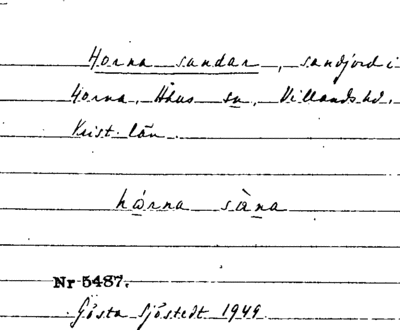 Horna sandar, sandjord i
Horna, Åhus sn, Villands hd,
Krist. län.
hòrna sàna
Nr 5487.
Gösta Sjöstedt 1949.